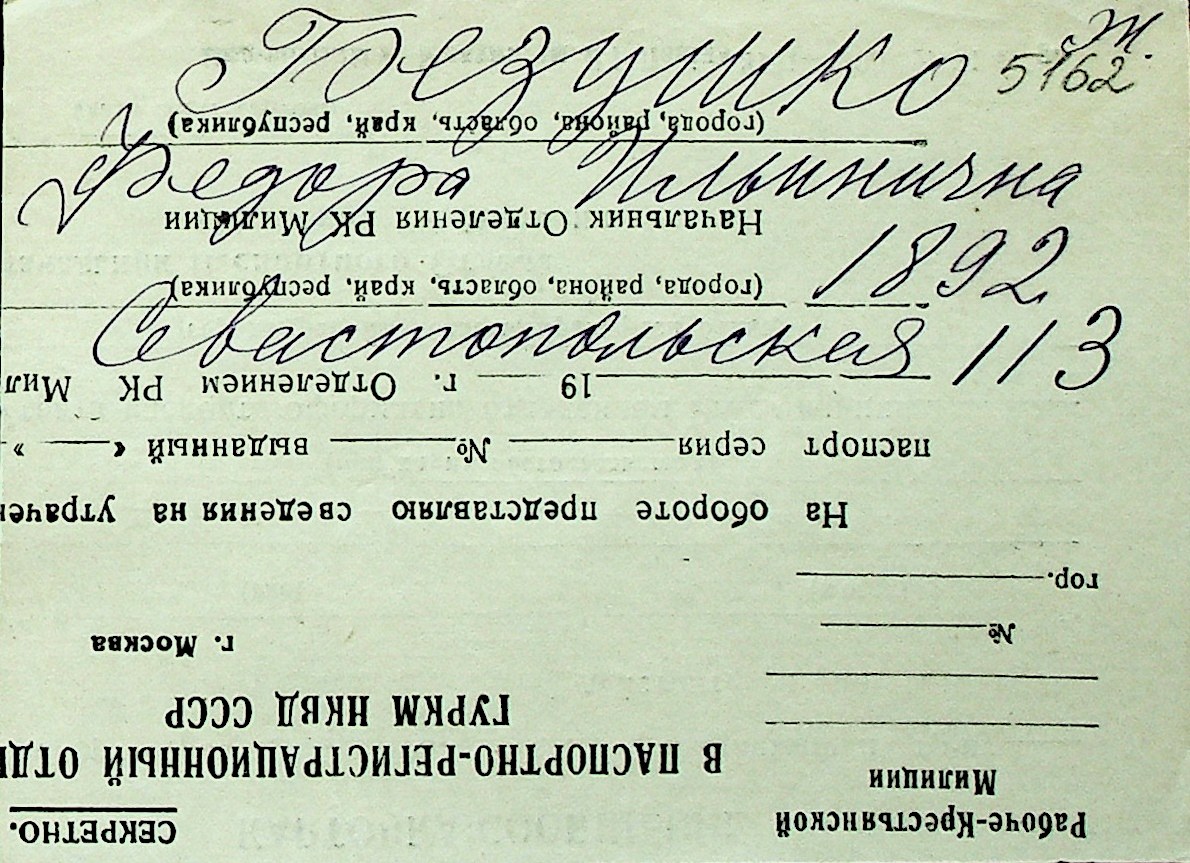 Ж.
5162
Безушко
Федора Ильинична
1892
Севастопольская 113
СЕКРЕТНО.
Рабоче-Крестьянской
Милиции
№
гор.
В ПАСПОРТНО-РЕГИСТРАЦИОННЫЙ ОТД
ГУРКМ НКВД СССР
г. Москва
На обороте представляю сведения на утрачен
паспорт серия № выданный « »
19 г. Отделением РК Мил
(города, района, область, край, республика)
Начальник Отделения РК Милиции
(города, района, область, край, республика)